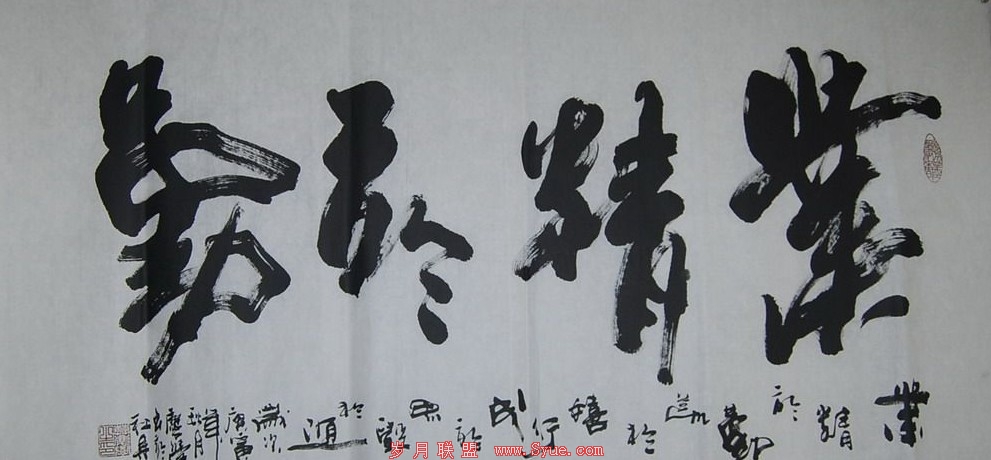 業精於勤
業精於勤荒於嬉行成於思毀於隨歲次庚寅年秋月
岁月联盟 www.Syue.com